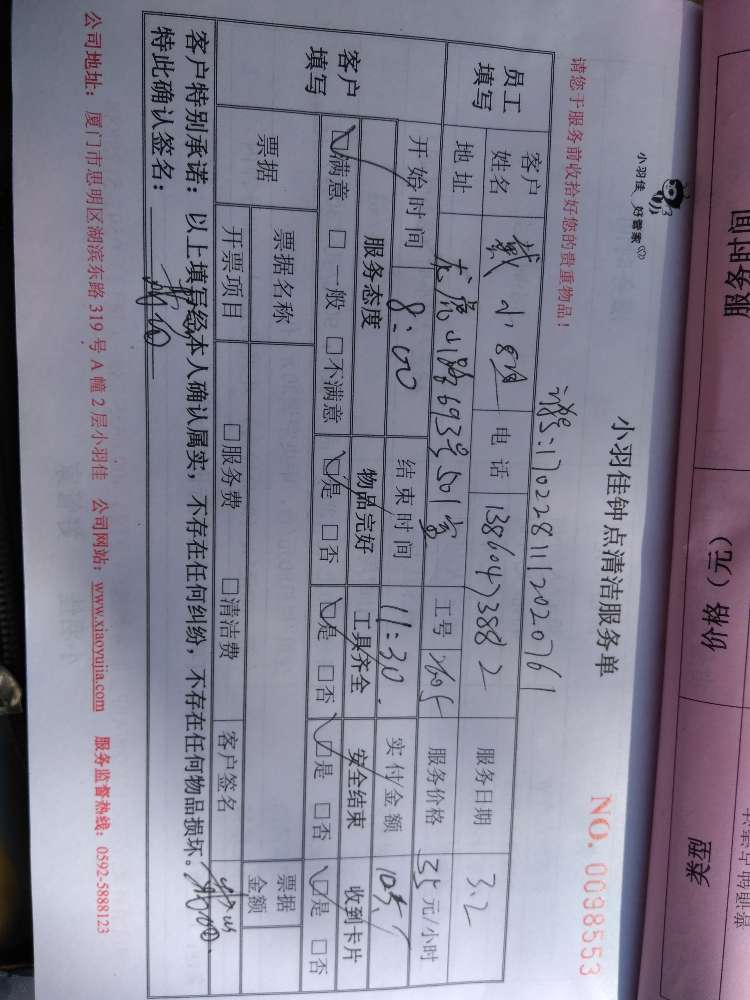 小羽佳 好管家
小羽佳钟点清洁服务单
NO. 0098553
请您于服务前收拾好您的贵重物品！
员工填写
客户姓名
戴小
电话
服务日期 3.2
地址 龙虎山路693号501室
工号
服务价格 35 元/小时
开始时间 8:00
结束时间 11:30
实付金额
客户填写
服务态度 物品完好 工具齐全 安全结束 收到卡片
☑满意 □一般 □不满意 ☑是 □否 ☑是 □否 ☑是 □否 ☑是 □否
票据
票据名称
票据金额
开票项目 □服务费 □清洁费
客户签名
客户特别承诺：以上填写经本人确认属实，不存在任何纠纷，不存在任何物品损坏。
特此确认签名：
公司地址：厦门市思明区湖滨东路 319 号 A 幢 2 层小羽佳 公司网站：www.xiaoyujia.com 服务监督热线：0592-5888123
服务时间
价格（元）
类型